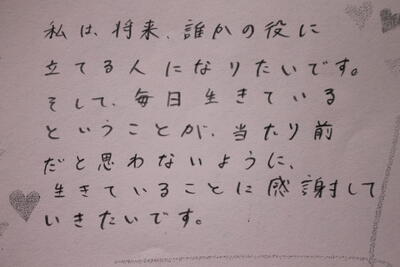 私は、将来、誰かの役に
立てる人になりたいです。
そして、毎日生きている
ということが、当たり前
だと思わないように、
生きていることに感謝して
いきたいです。